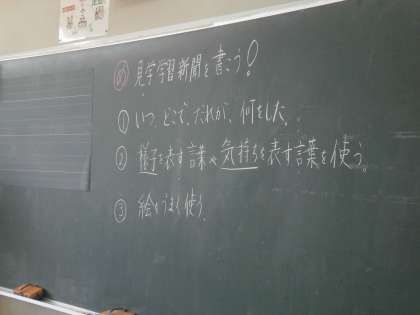 め 見学学習新聞を書こう!
① いつ、どこで、だれが、何をした。
② 様子を表す言葉や気持ちを表す言葉を使う。
③ 絵をうまく使う。